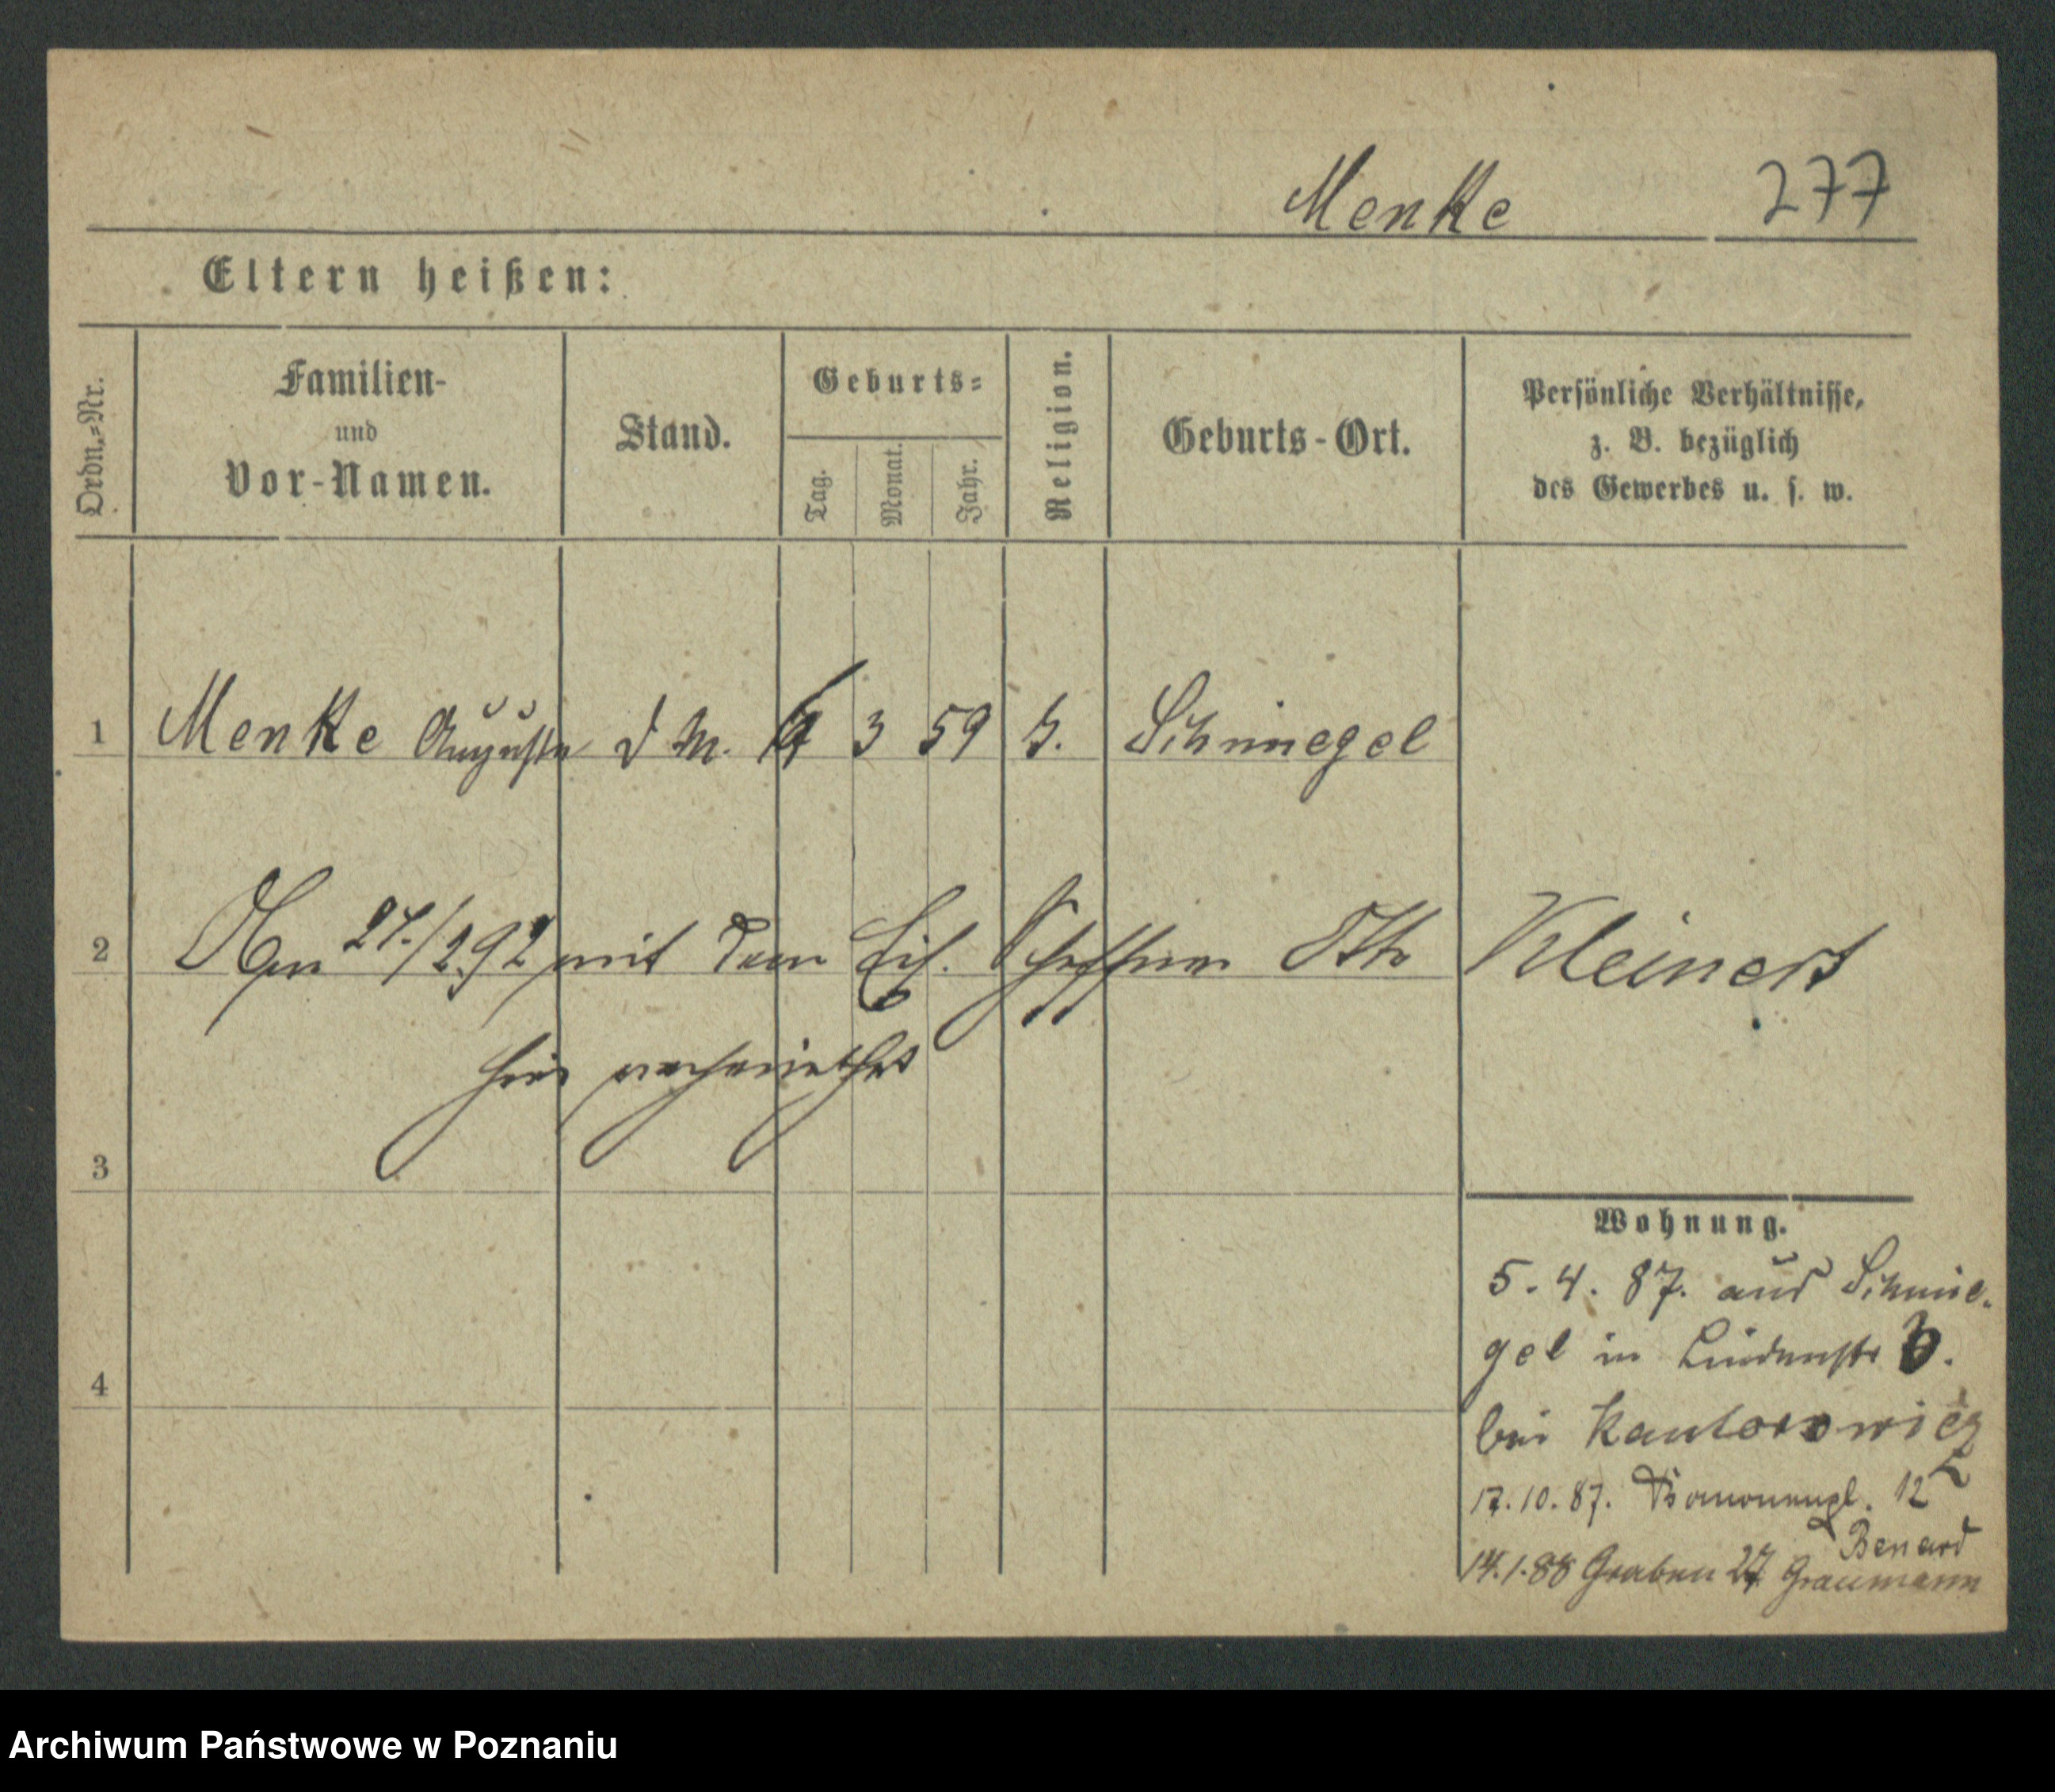 Menke 277
Eltern heißen:
Ordn.-Nr.
Familien-
und
Vor-Namen.
Stand.
Geburts-
Tag.
Monat.
Jahr.
Religion.
Geburts-Ort.
Persönliche Verhältnisse,
z. B. bezüglich
des Gewerbes u. s. w.
1 Menke Auguste d M. 3 59 Schmiegel
2 Am 27./2.92 mit dem Kleinert
hier verheirathet
3
Wohnung.
5. 4. 87. aus Schmie-
gel in Lindenstr
4
bei Kantorowicz
17. 10. 87. 12
Benard
14. 1. 88 Graben 27 Graumann
Archiwum Państwowe w Poznaniu